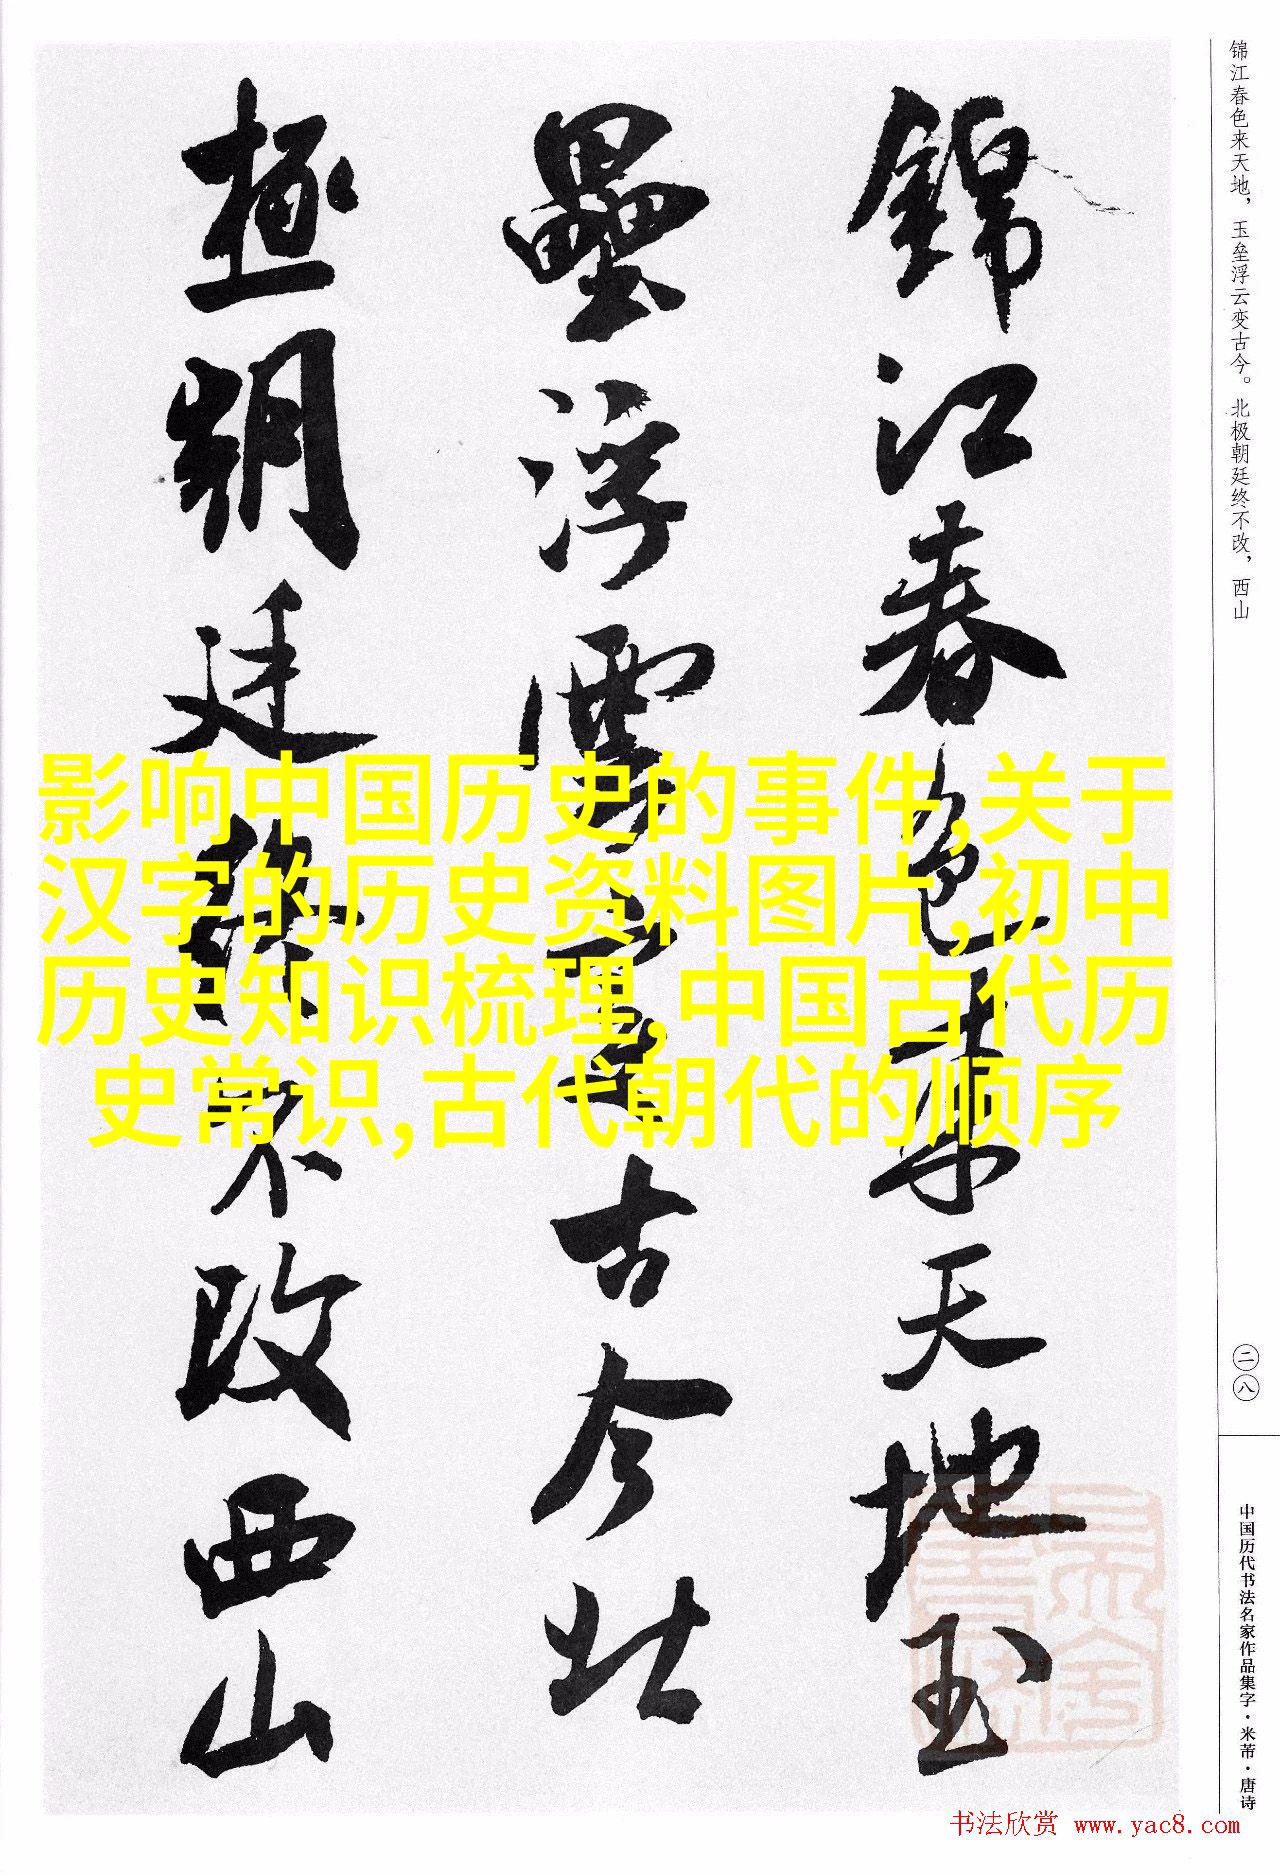 锦江春色来天地，玉垒浮云变古今。北极朝廷终不改，西山
錦江春色来天地玉
壘浮雲變古今北
極朝廷終不改西山
影响中国历史的事件,关于
汉字的历史资料图片,初中
历史知识梳理,中国古代历
史常识,古代朝代的顺序
二八
中国历代书法名家作品集字·米芾·唐诗
书法欣赏 www.yac8.com